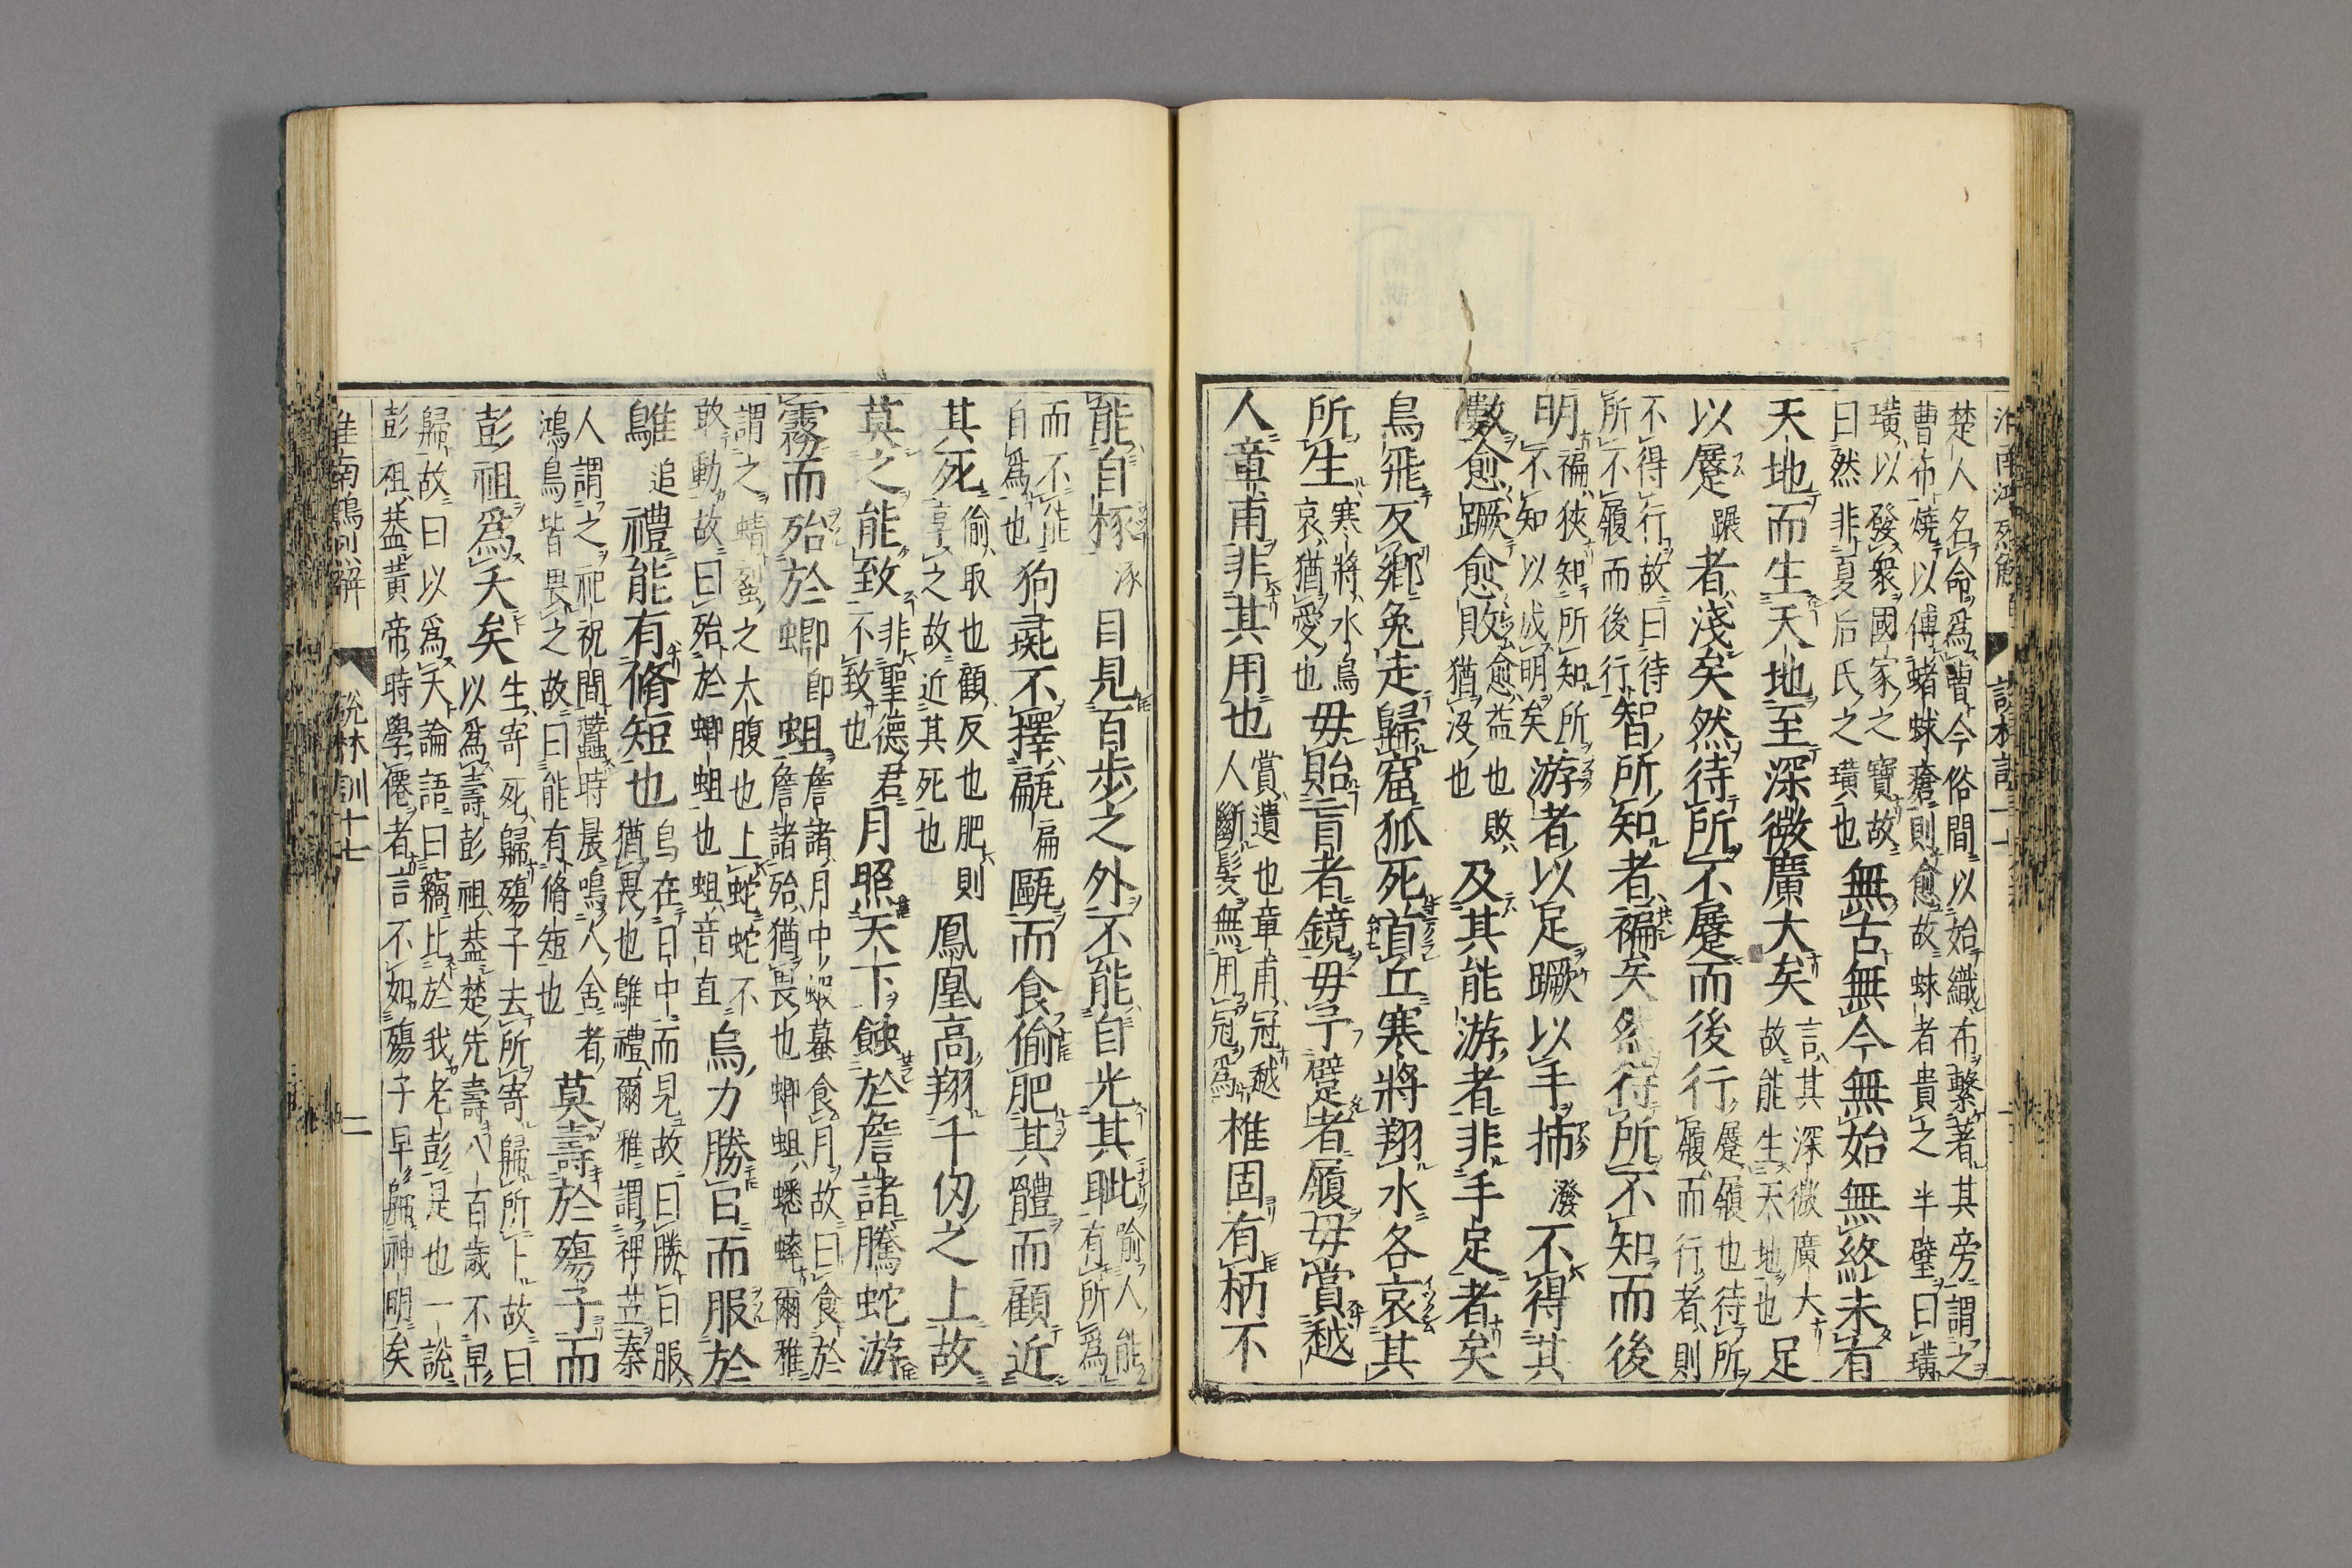 淮南鴻烈解
楚人名命爲曹今俗間以始織布繫著其旁謂之
曹布燒以傅蝫蛷瘡則愈故蛷者貴之半璧曰璜
璜以發衆國家之寶故
曰然非夏后氏之璜也
無古無今無始無終未有
天地而生天地至深微廣大矣
言其深微廣大
故能生天地也
足
以蹷蹍者淺矣然待所不蹷而後行
蹷履也待所
履而行者則
不得行故曰待
所不履而後行
智所知者褊矣然待所不知而後
明
褊狹知所知所
不知以成明矣
游者以足蹶以手㧊潑不得其
數愈蹶愈敗
愈益也敗
猶沒也
及其能游者非手足者矣
鳥飛反鄉兔走歸窟狐死首丘寒將翔水各哀其
所生
寒將水鳥
哀猶愛也
毋貽盲者鏡毋予躄者履毋賞越
人章甫非其用也
賞遺也章甫冠越
人斷髮無用冠爲
椎固有柄不
能自椓涿目見百步之外不能自光其眦
喻人能
有所爲
而不能
自爲也
狗彘不擇甂扁甌而食偷肥其體而顧近
其死
偷取也顧反也肥則
享之故近其死也
鳳凰高翔千仞之上故
莫之能致
非聖德君
不致也
月照天下蝕於詹諸騰蛇游
霧而殆於蝍即蛆
詹諸月中蝦蟇食月故曰食於
詹諸殆猶畏也蝍蛆蟋蟀爾雅
謂之蜻蛚之大腹也上蛇蛇不
敢動故曰殆於蝍蛆也蛆音直
烏力勝日而服於
鵻追禮能有脩短也
烏在日中而見故曰勝日服
猶畏也鵻禮爾雅謂裨苙秦
人謂之祀祝間蠶時晨鳴人舍者
鴻鳥皆畏之故曰能有脩短也
莫壽於殤子而
彭祖爲夭矣
生寄死歸殤子去所寄歸所下故曰
以爲壽彭祖蓋楚先壽八百歲不早
歸故曰以爲夭論語曰竊比於我老彭是也一說
彭祖蓋黃帝時學僊者言不如殤子早歸神明矣
淮南鴻烈解 說林訓十七 二